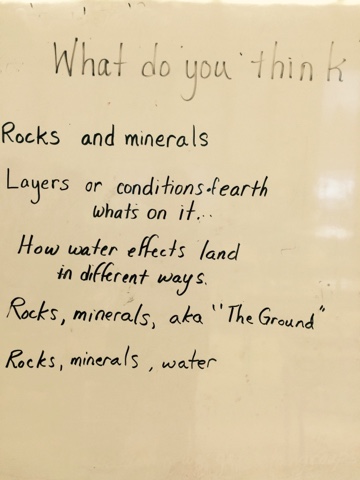 What do you think
Rocks and minerals
Layers or conditions of earth
whats on it...
How water effects land
in different ways.
Rocks, minerals, aka "The Ground"
Rocks, minerals, water